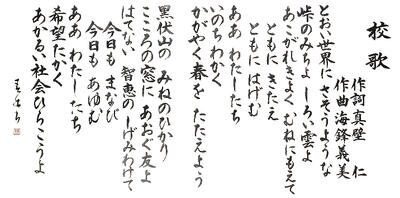 校歌
作詞 真壁 仁
作曲 海鋒義美
とおい世界に さそうような
峠のみちよ しろい雲よ
あこがれきよく むねにもえて
ともに きたえ
ともに はげむ
ああ わたしたち
いのちわかく
かがやく春を たたえよう
黒伏山の みねのひかり
こころの窓に あおぐ友よ
はてない 智恵の しげみわけて
今日も まなび
今日も あゆむ
ああ わたしたち
希望たかく
あかるい社会ひらこうよ